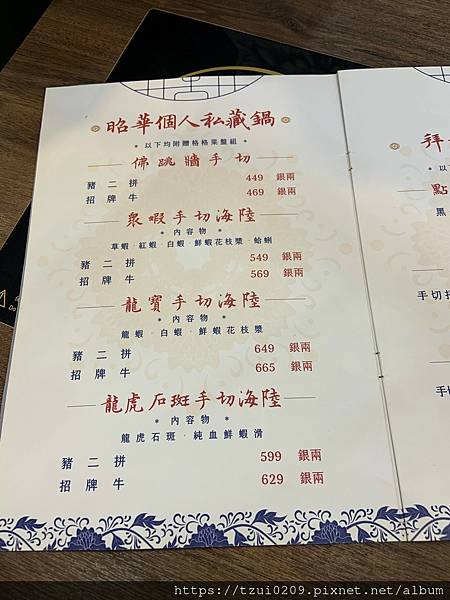 昭華個人私藏鍋
* 以下均附贈格格菜盤組 *
佛跳牆手切
豬二拼 449 銀兩
招牌牛 469 銀兩
眾蝦手切海陸
* 內容物 *
草蝦·紅蝦·白蝦·鮮蝦花枝漿·蛤蜊
豬二拼 549 銀兩
招牌牛 569 銀兩
龍寶手切海陸
* 內容物 *
龍蝦·白蝦·鮮蝦花枝漿
豬二拼 649 銀兩
招牌牛 665 銀兩
龍虎石斑手切海陸
* 內容物 *
龍虎石斑·純血鮮蝦滑
豬二拼 599 銀兩
招牌牛 629 銀兩
拜
點
黑
手切
手切
https://tzui0209.pixnet.net/album